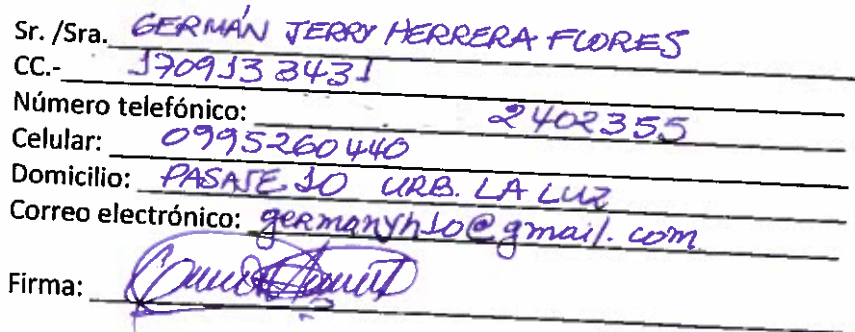 Sr. /Sra. GERMÁN JERRY HERRERA FLORES
CC.- 1709133431
Número telefónico: 2402355
Celular: 0995260440
Domicilio: PASAJE 10 URB. LA LUZ
Correo electrónico: germanyh10@gmail.com
Firma: